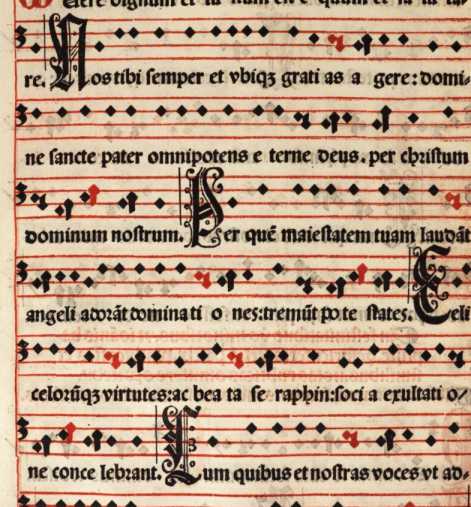 re. Nos tibi semper et vbiqꝫ grati as a gere: domi-
ne sancte pater omnipotens e terne deus. per christum
dominum nostrum. Per quē maiestatem tuam laudāt
angeli adorāt domina ti o nes: tremūt po te states. Celi
celorūqꝫ virtutes: ac bea ta se raphin: soci a exultati o/
ne conce lebrant. Cum quibus et nostras voces vt ad-